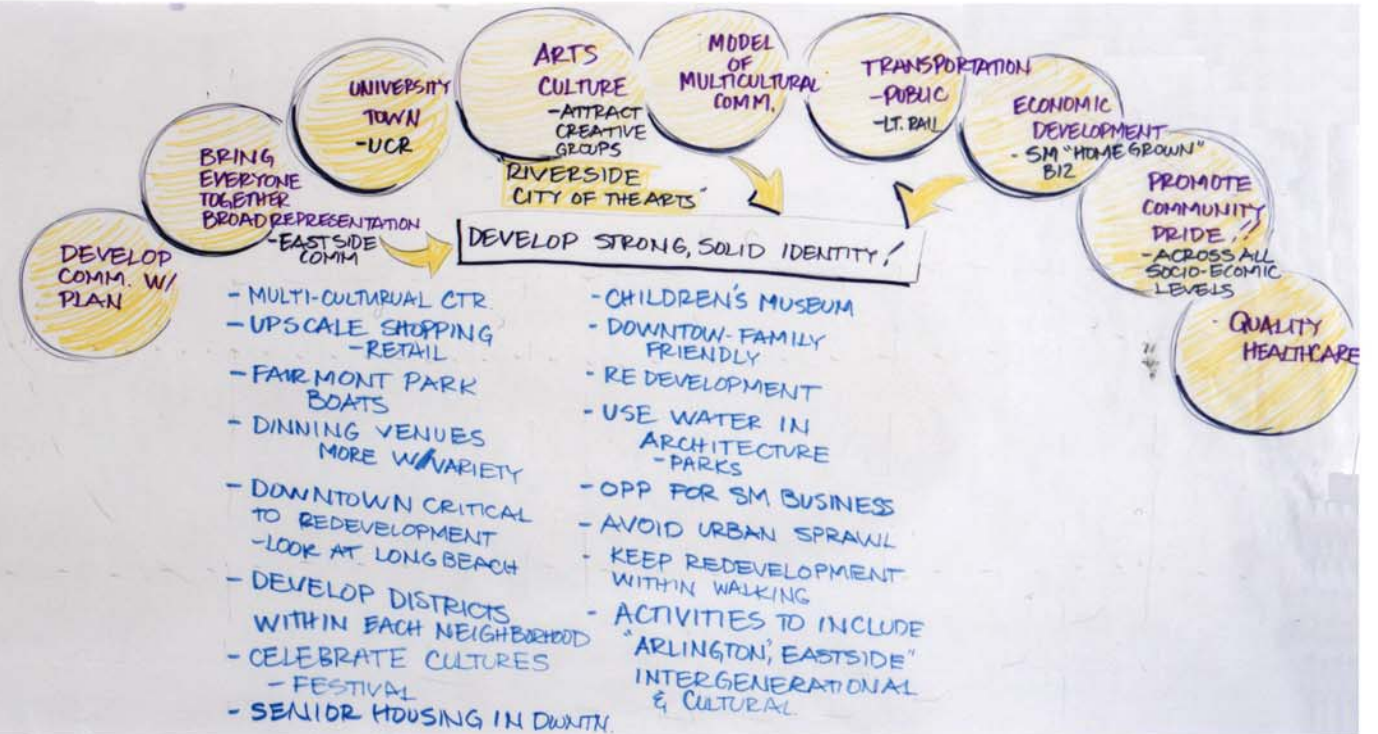 DEVELOP
COMM. W/
PLAN
BRING
EVERYONE
TOGETHER
BROAD REPRESENTATION
-EAST SIDE
COMM
UNIVERSITY
TOWN
-UCR
ARTS
CULTURE
-ATTRACT
CREATIVE
GROUPS
RIVERSIDE
CITY OF THE ARTS"
MODEL
OF
MULTICULTURAL
COMM.
TRANSPORTATION
-PUBLIC
-LT. RAIL
ECONOMIC
DEVELOPMENT
- SM "HOME GROWN"
BIZ
PROMOTE
COMMUNITY
PRIDE!!
-ACROSS ALL
SOCIO-ECOMIC
LEVELS
QUALITY
HEALTHCARE
DEVELOP STRONG, SOLID IDENTITY!
- MULTI-CULTURUAL CTR.
- UPSCALE SHOPPING
-RETAIL
- FAIRMONT PARK
BOATS
- DINNING VENUES
MORE W/VARIETY
- DOWNTOWN CRITICAL
TO REDEVELOPMENT
-LOOK AT LONG BEACH
- DEVELOP DISTRICTS
WITHIN EACH NEIGHBORHOOD
- CELEBRATE CULTURES
- FESTIVAL
- SENIOR HOUSING IN DWNTN.
- CHILDREN'S MUSEUM
- DOWNTOW-FAMILY
FRIENDLY
- REDEVELOPMENT
- USE WATER IN
ARCHITECTURE
-PARKS
- OPP FOR SM BUSINESS
- AVOID URBAN SPRAWL
- KEEP REDEVELOPMENT
WITHIN WALKING
- ACTIVITIES TO INCLUDE
"ARLINGTON, EASTSIDE"
INTERGENERATIONAL
& CULTURAL